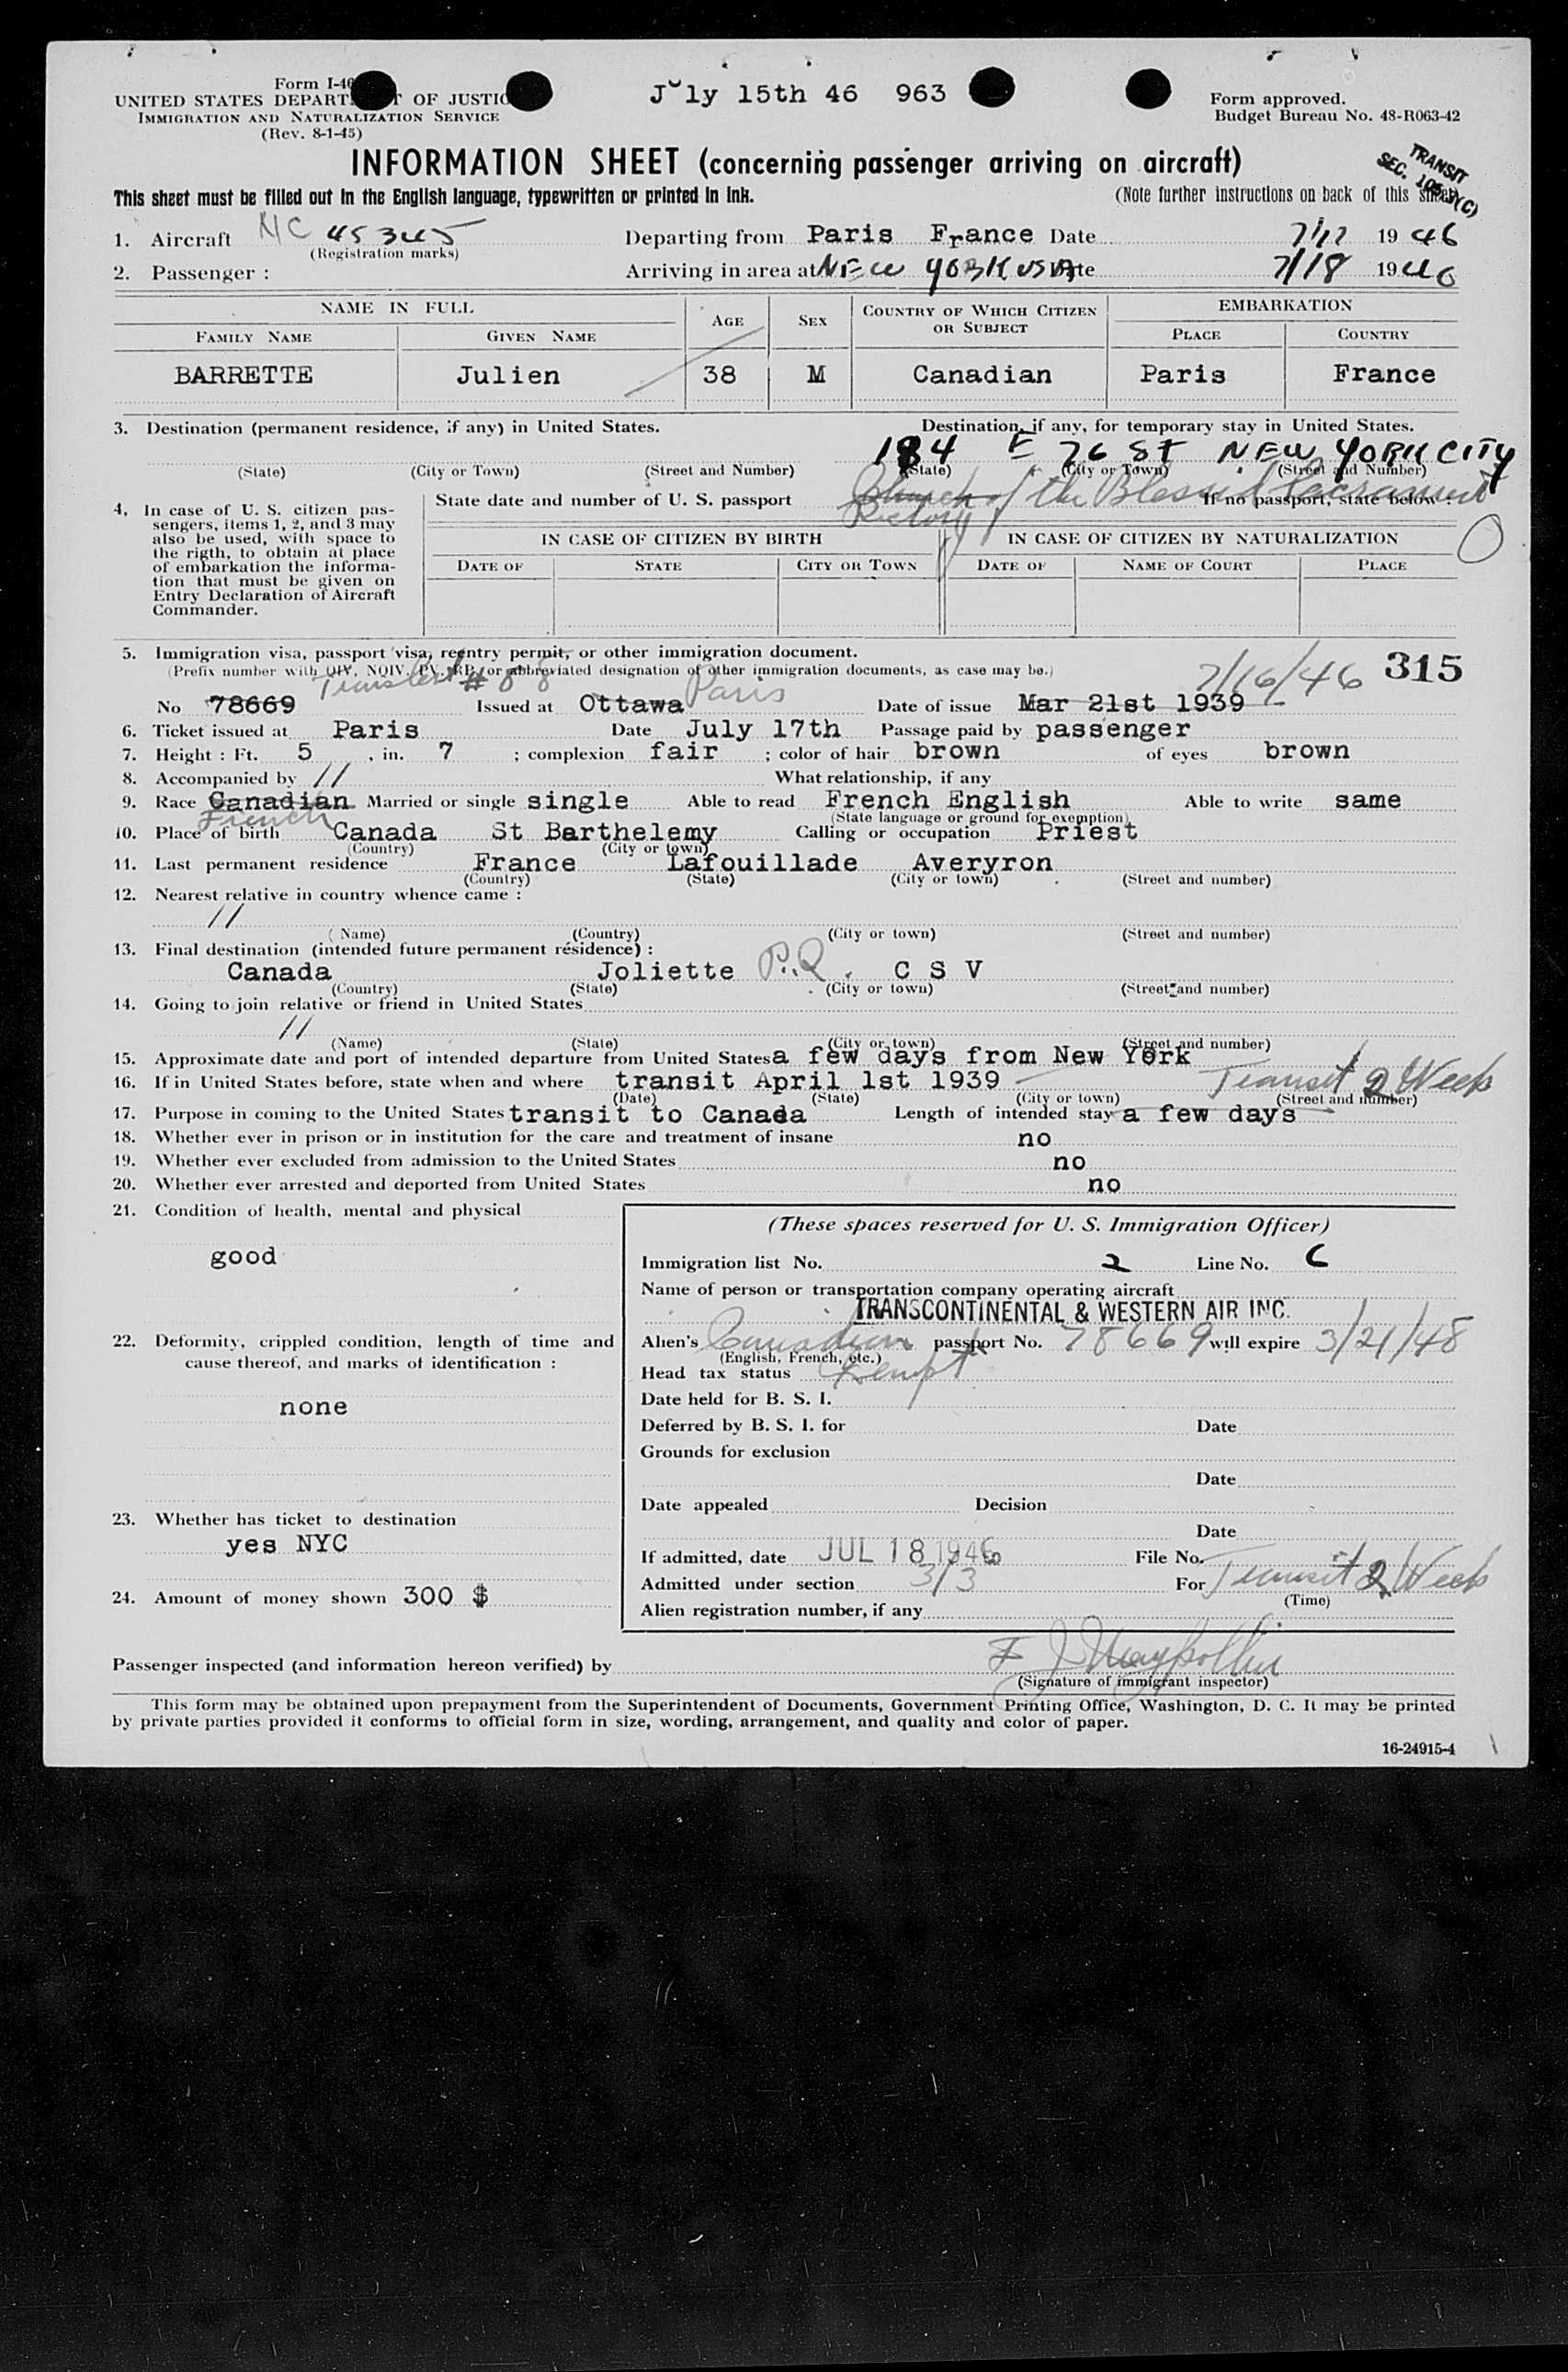 Form I-46
UNITED STATES DEPART T OF JUSTIC
IMMIGRATION AND NATURALIZATION SERVICE
(Rev. 8-1-45)
July 15th 46 963
Form approved.
Budget Bureau No. 48-R063-42
INFORMATION SHEET (concerning passenger arriving on aircraft)
TRANSIT
SEC. (C)
This sheet must be filled out in the English language, typewritten or printed in ink. (Note further instructions on back of this sheet)
1. Aircraft NC 45345 Departing from Paris France Date 7/17 1946
(Registration marks)
2. Passenger : Arriving in area at NEW YORK USA Date 7/18 1946
NAME IN FULL AGE SEX COUNTRY OF WHICH CITIZEN OR SUBJECT EMBARKATION
FAMILY NAME GIVEN NAME PLACE COUNTRY
BARRETTE Julien 38 M Canadian Paris France
3. Destination (permanent residence, if any) in United States. Destination, if any, for temporary stay in United States.
184 E 76 ST NEW YORK CITY
(State) (City or Town) (Street and Number) (State) (City or Town) (Street and Number)
4. In case of U. S. citizen passengers, items 1, 2, and 3 may also be used, with space to the rigth, to obtain at place of embarkation the information that must be given on Entry Declaration of Aircraft Commander.
State date and number of U. S. passport If no passport, state below :
Church of the Blessed Sacrament
Rectory
IN CASE OF CITIZEN BY BIRTH IN CASE OF CITIZEN BY NATURALIZATION
DATE OF STATE CITY OR TOWN DATE OF NAME OF COURT PLACE
5. Immigration visa, passport visa, reentry permit, or other immigration document.
(Prefix number with QIV, NQIV, PV, RP, or abbreviated designation of other immigration documents, as case may be.)
7/16/46 315
# 88 Paris
No 78669 Issued at Ottawa Date of issue Mar 21st 1939
6. Ticket issued at Paris Date July 17th Passage paid by passenger
7. Height : Ft. 5 , in. 7 ; complexion fair ; color of hair brown of eyes brown
8. Accompanied by // What relationship, if any
9. Race Canadian Married or single single Able to read French English Able to write same
French
(State language or ground for exemption)
10. Place of birth Canada St Barthelemy Calling or occupation Priest
(Country) (City or town)
11. Last permanent residence France Lafouillade Averyron
(Country) (State) (City or town) (Street and number)
12. Nearest relative in country whence came :
//
(Name) (Country) (City or town) (Street and number)
13. Final destination (intended future permanent résidence) :
Canada Joliette P.Q. C S V
(Country) (State) (City or town) (Street and number)
14. Going to join relative or friend in United States
//
(Name) (State) (City or town) (Street and number)
15. Approximate date and port of intended departure from United States a few days from New York
16. If in United States before, state when and where transit April 1st 1939 Transit 2 Week
(Date) (State) (City or town) (Street and number)
17. Purpose in coming to the United States transit to Canada Length of intended stay a few days
18. Whether ever in prison or in institution for the care and treatment of insane no
19. Whether ever excluded from admission to the United States no
20. Whether ever arrested and deported from United States no
21. Condition of health, mental and physical
good
22. Deformity, crippled condition, length of time and cause thereof, and marks of identification :
none
23. Whether has ticket to destination
yes NYC
24. Amount of money shown 300 $
(These spaces reserved for U. S. Immigration Officer)
Immigration list No. 2 Line No. 6
Name of person or transportation company operating aircraft
TRANSCONTINENTAL & WESTERN AIR INC.
Alien's Canadian passport No. 78669 will expire 3/21/48
(English, French, etc.)
Head tax status Exempt
Date held for B. S. I.
Deferred by B. S. I. for Date
Grounds for exclusion
Date
Date appealed Decision
Date
If admitted, date JUL 18 1946 File No.
Admitted under section 3/3 For Transit 2 Week
(Time)
Alien registration number, if any
Passenger inspected (and information hereon verified) by
(Signature of immigrant inspector)
This form may be obtained upon prepayment from the Superintendent of Documents, Government Printing Office, Washington, D. C. It may be printed
by private parties provided it conforms to official form in size, wording, arrangement, and quality and color of paper.
16-24915-4